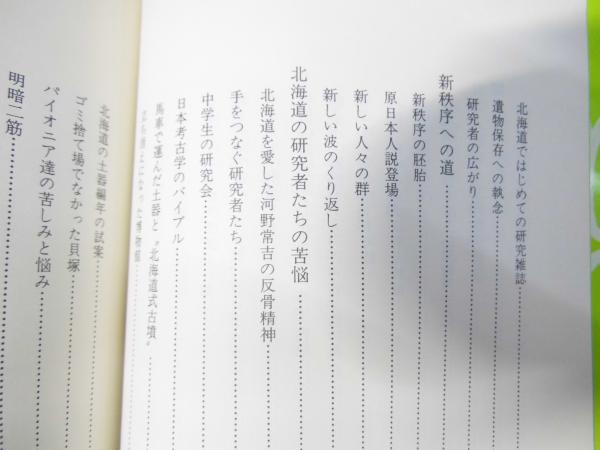 北海道ではじめての研究雑誌
遺物保存への執念
研究者の広がり
新秩序への道
新秩序の胚胎
原日本人説登場
新しい人々の群
新しい波のくり返し
北海道の研究者たちの苦悩
北海道を愛した河野常吉の反骨精神
手をつなぐ研究者たち
中学生の研究会
日本考古学のバイブル
馬車で運んだ土器と〝北海道式古墳〟
北海道の土器編年の試案
ゴミ捨て場でなかった貝塚
パイオニア達の苦しみと悩み
明暗二筋